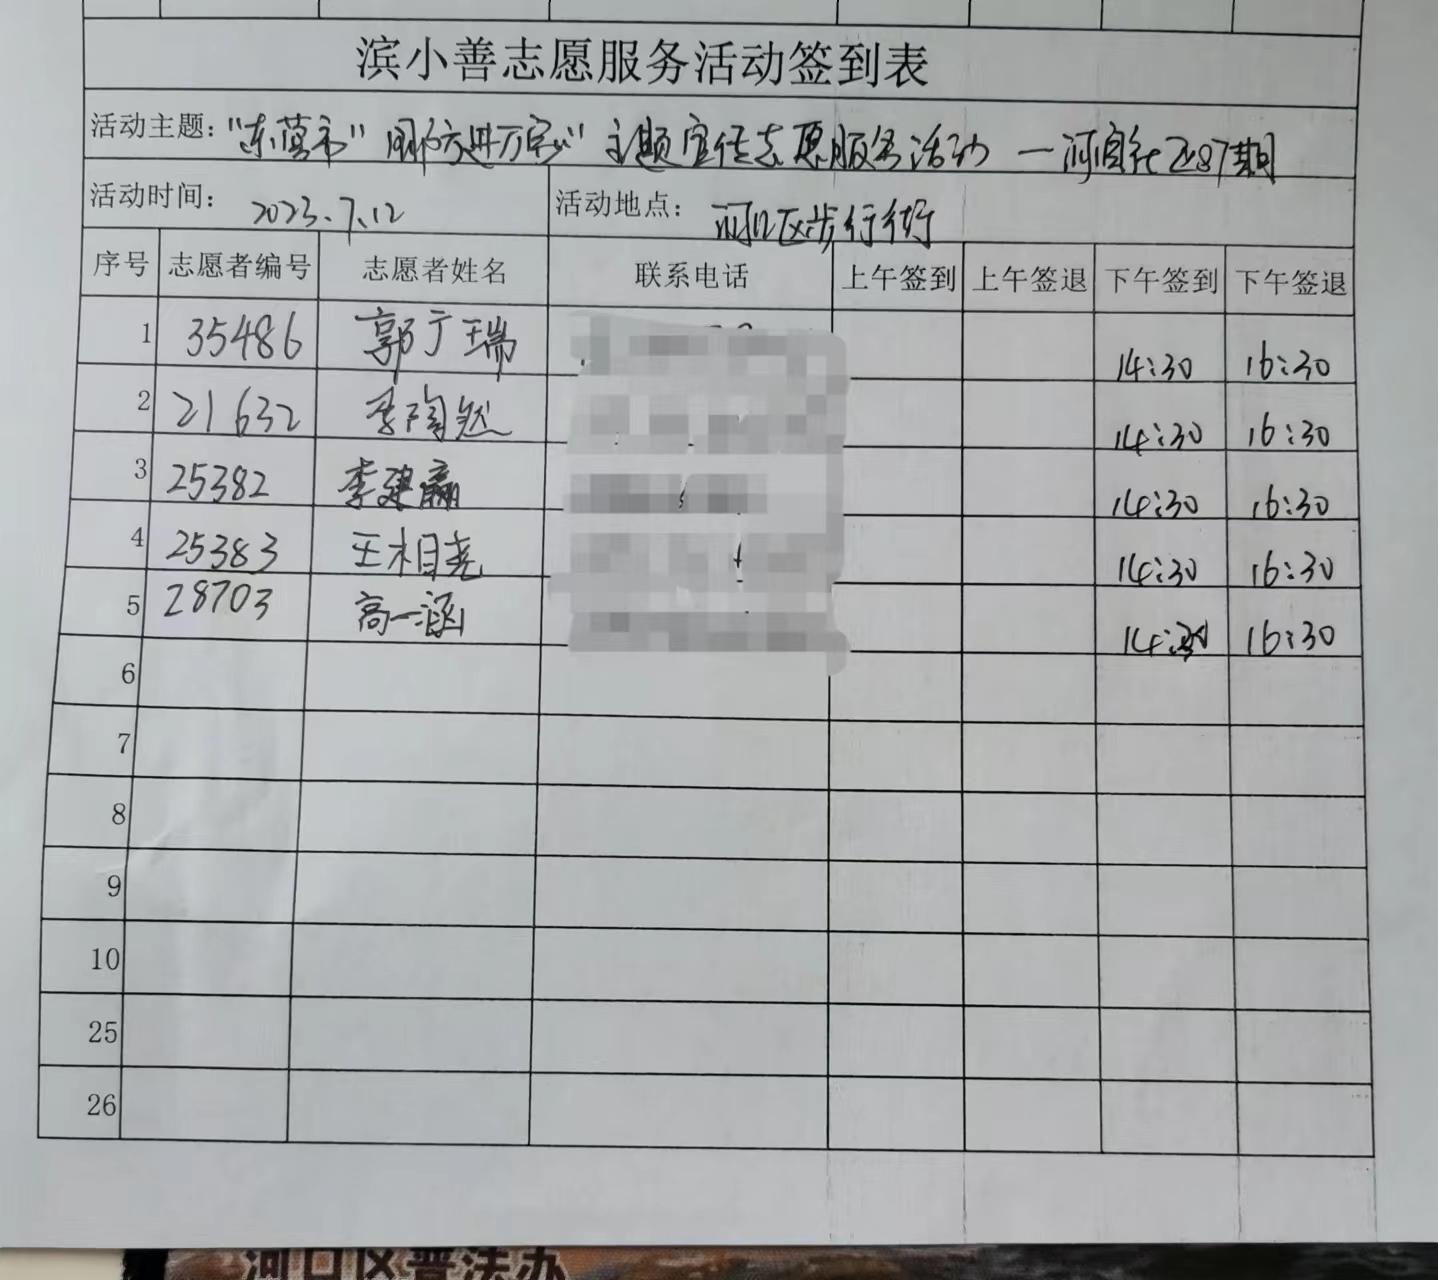 滨小善志愿服务活动签到表
活动主题："东营市" 主题宣传志愿服务活动 — 87期
活动时间： 2023.7.12 活动地点： 河口区步行街
序号 志愿者编号 志愿者姓名 联系电话 上午签到 上午签退 下午签到 下午签退
1 35486 郭于瑞 14:30 16:30
2 21632 李陶然 14:30 16:30
3 25382 李建赢 14:30 16:30
4 25383 王相尧 14:30 16:30
5 28703 高一涵 14:30 16:30
6
7
8
9
10
25
26
河口区普法办